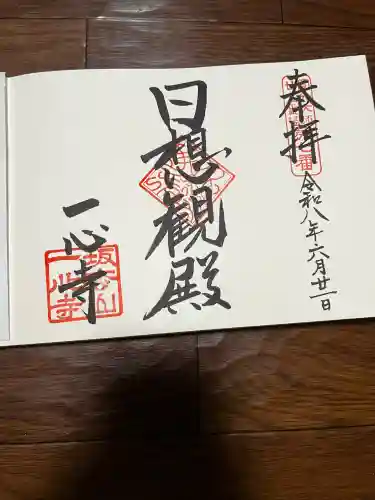 奉拝
令和八年六月廿一日
日想観殿
一心寺